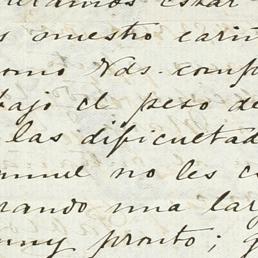 estar
nuestro cariñ
como Uds. comp
bajo el peso de
las dificultad
no les c
rando una lar
muy pronto;